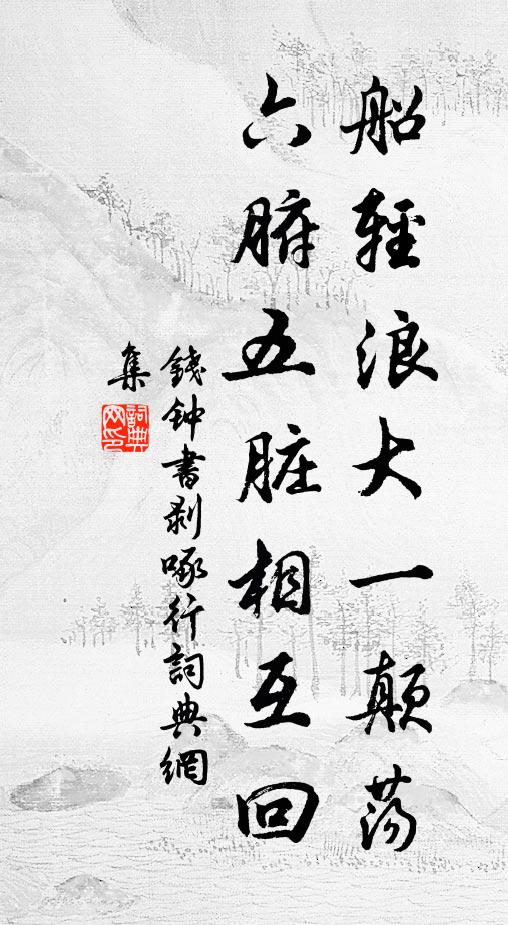 船輕浪大一颠荡
六腑五脏相互回
錢钟書剥啄行詞典網
集
詞典
网印